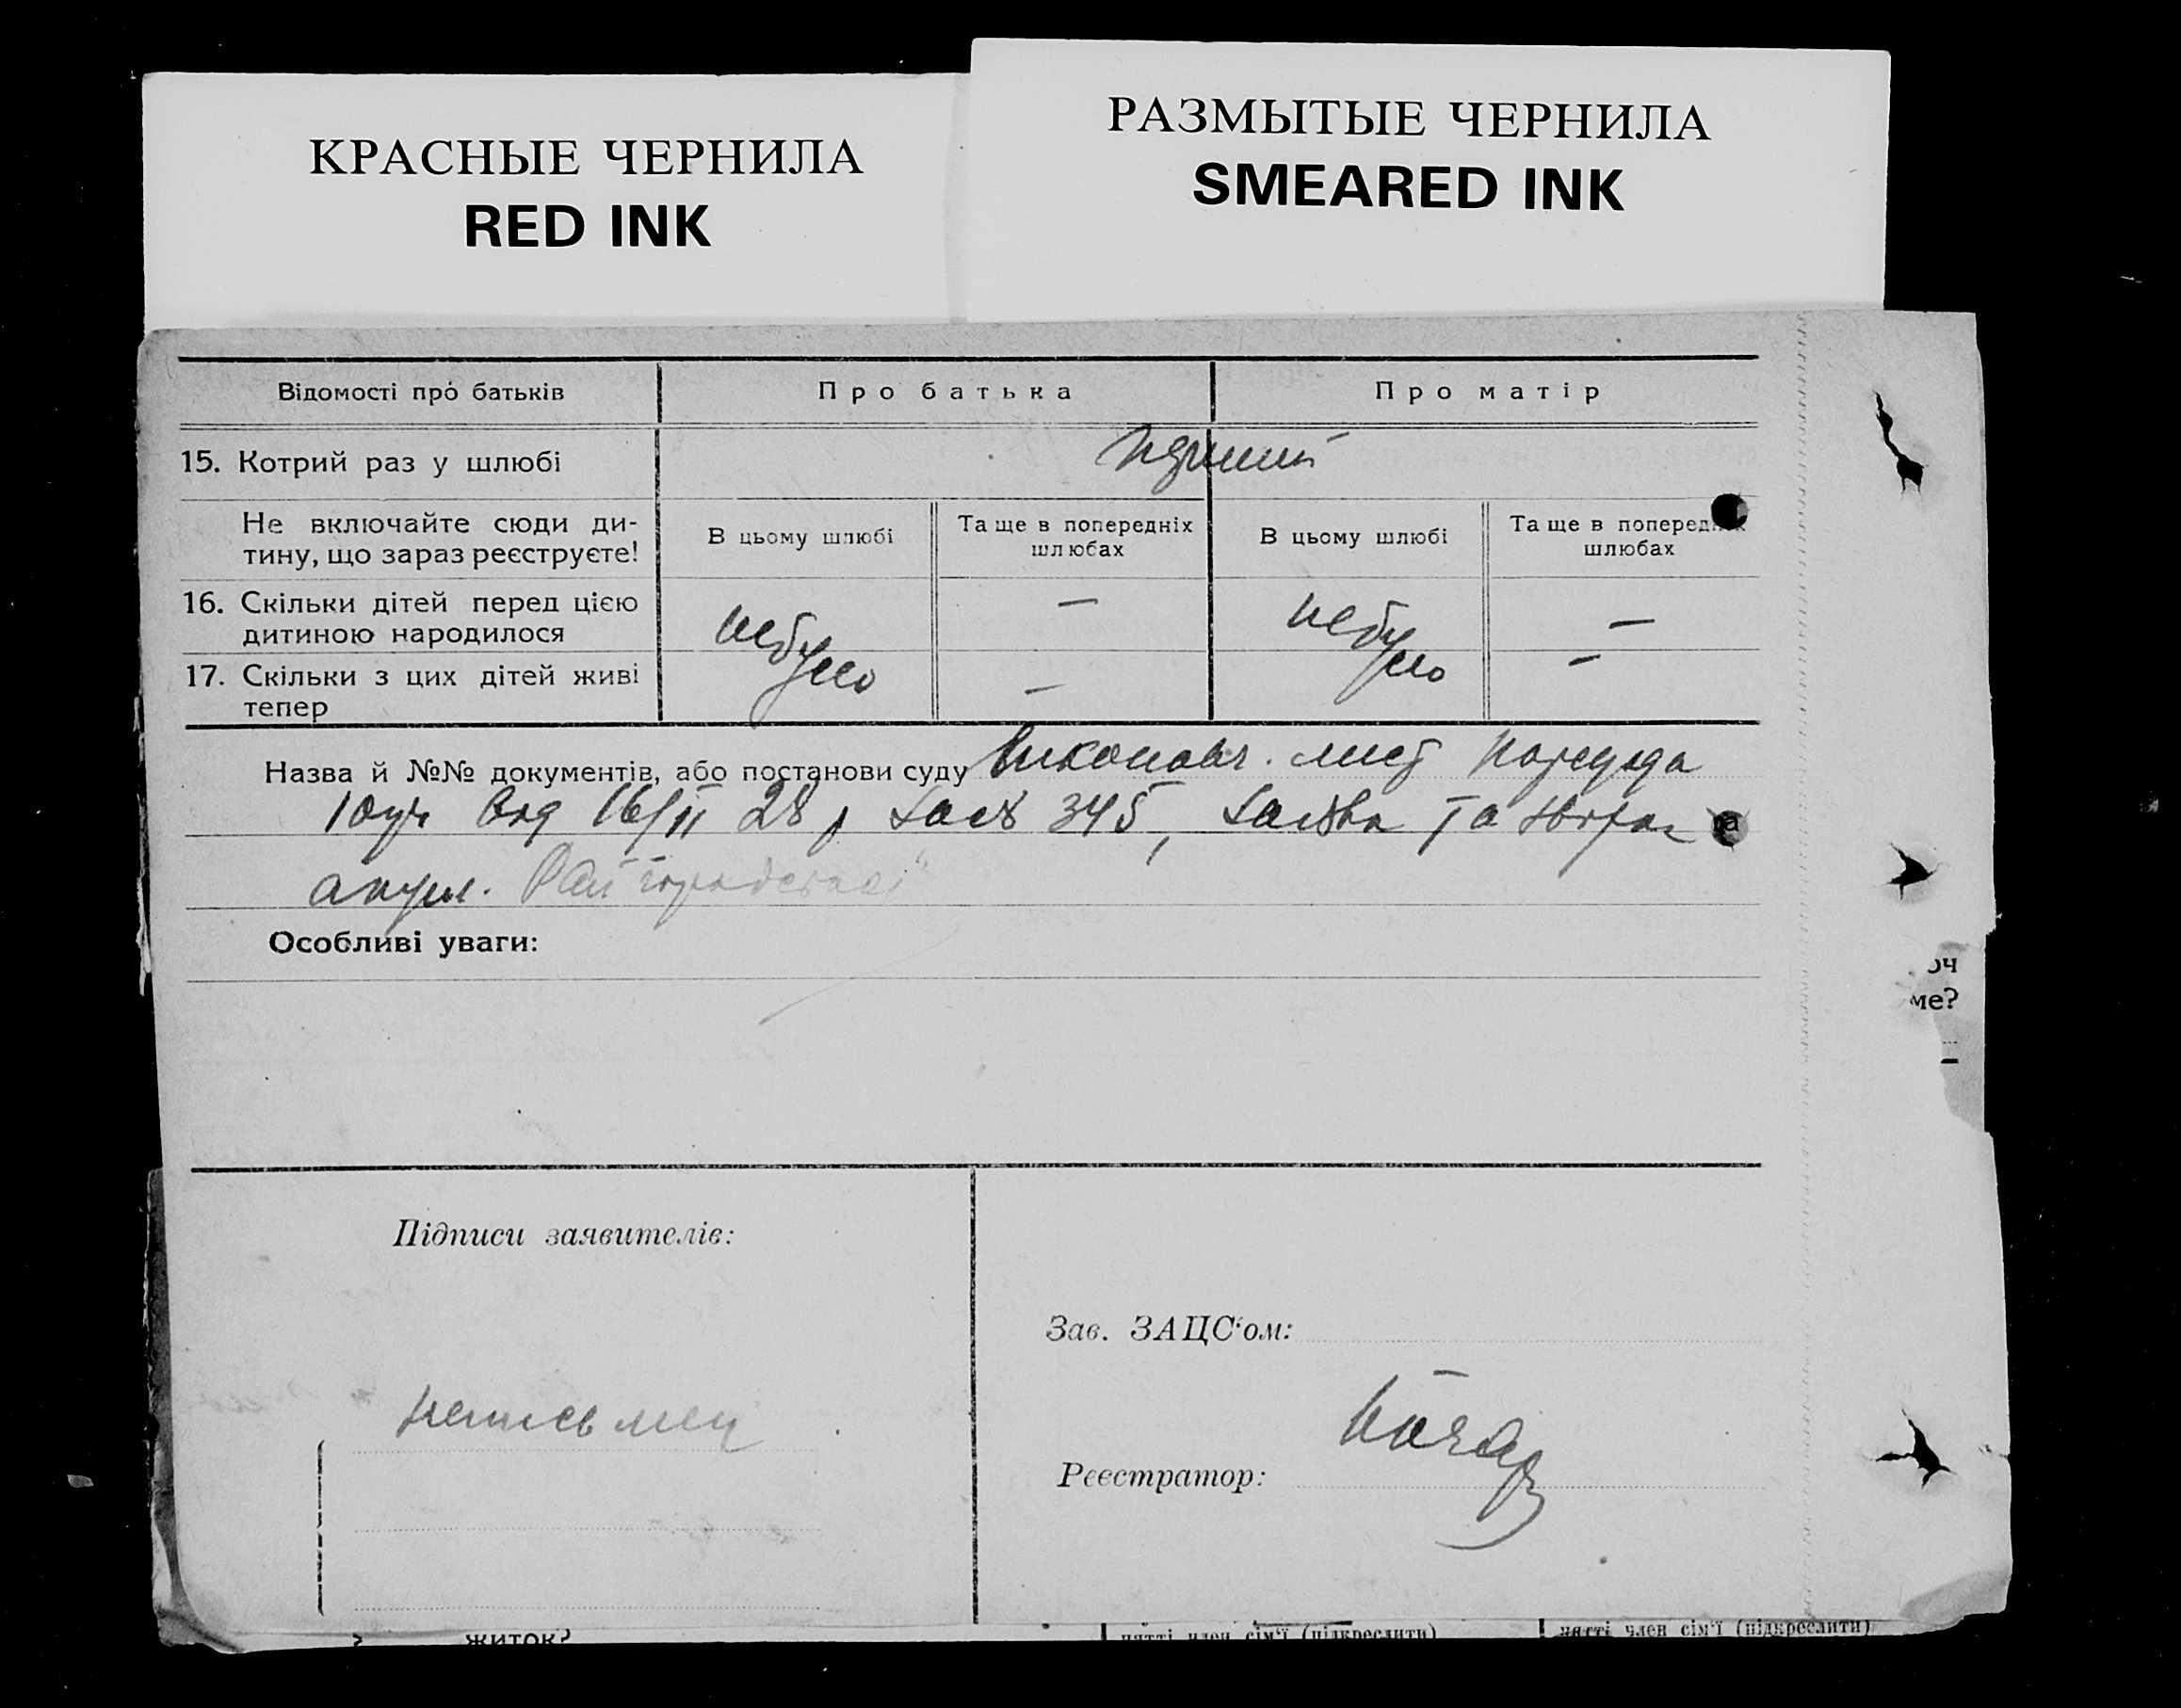 КРАСНЫЕ ЧЕРНИЛА
RED INK
РАЗМЫТЫЕ ЧЕРНИЛА
SMEARED INK
Відомості про батьків
Про батька
Про матір
15. Котрий раз у шлюбі
Не включайте сюди ди-
тину, що зараз реєструєте!
В цьому шлюбі
Та ще в попередніх
шлюбах
В цьому шлюбі
Та ще в поперед
шлюбах
16. Скільки дітей перед цією
дитиною народилося
небуло
—
небуло
—
17. Скільки з цих дітей живі
тепер
—
—
Назва й №№ документів, або постанови суду Виконавч. лист Нарсуда
від 16/II 28 р 345, та
акуш.
Особливі уваги:
оч
ме?
Підписи заявителів:
Зав. ЗАЦС'ом:
неписьмен
Реєстратор:
житок?
нятті член сім'ї (підкреслити)
нятті член сім'ї (підкреслити)